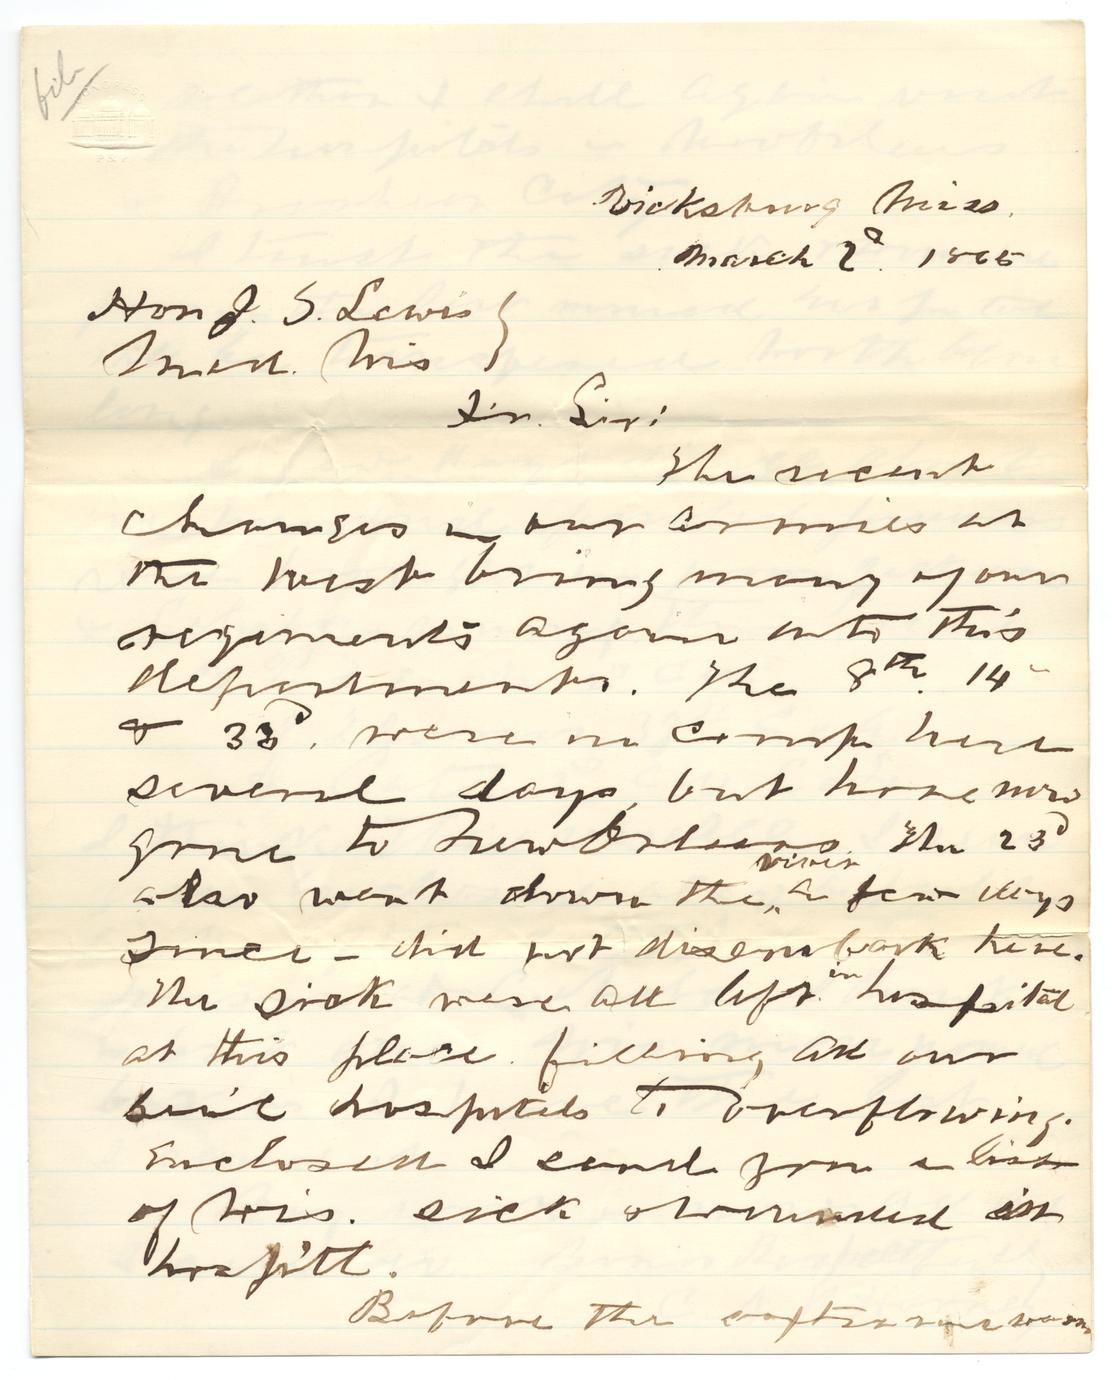 file
Vicksburg Miss.
March 2d. 1865
Hon J. S. Lewis
Mad. Wis
Dr. Sir:
The recent
changes in our armies at
the west bring many of our
regiments again into this
department. The 8th. 14
& 33d. were in camp here
several days, but have now
gone to New Orleans. The 23d
also went down the river a few days
since - did not disembark here.
The sick were all left in hospital
at this place filling all our
hospitals to overflowing.
Enclosed I send you a list
of Wis. sick & wounded in
hospitl.
Before the extreme warm